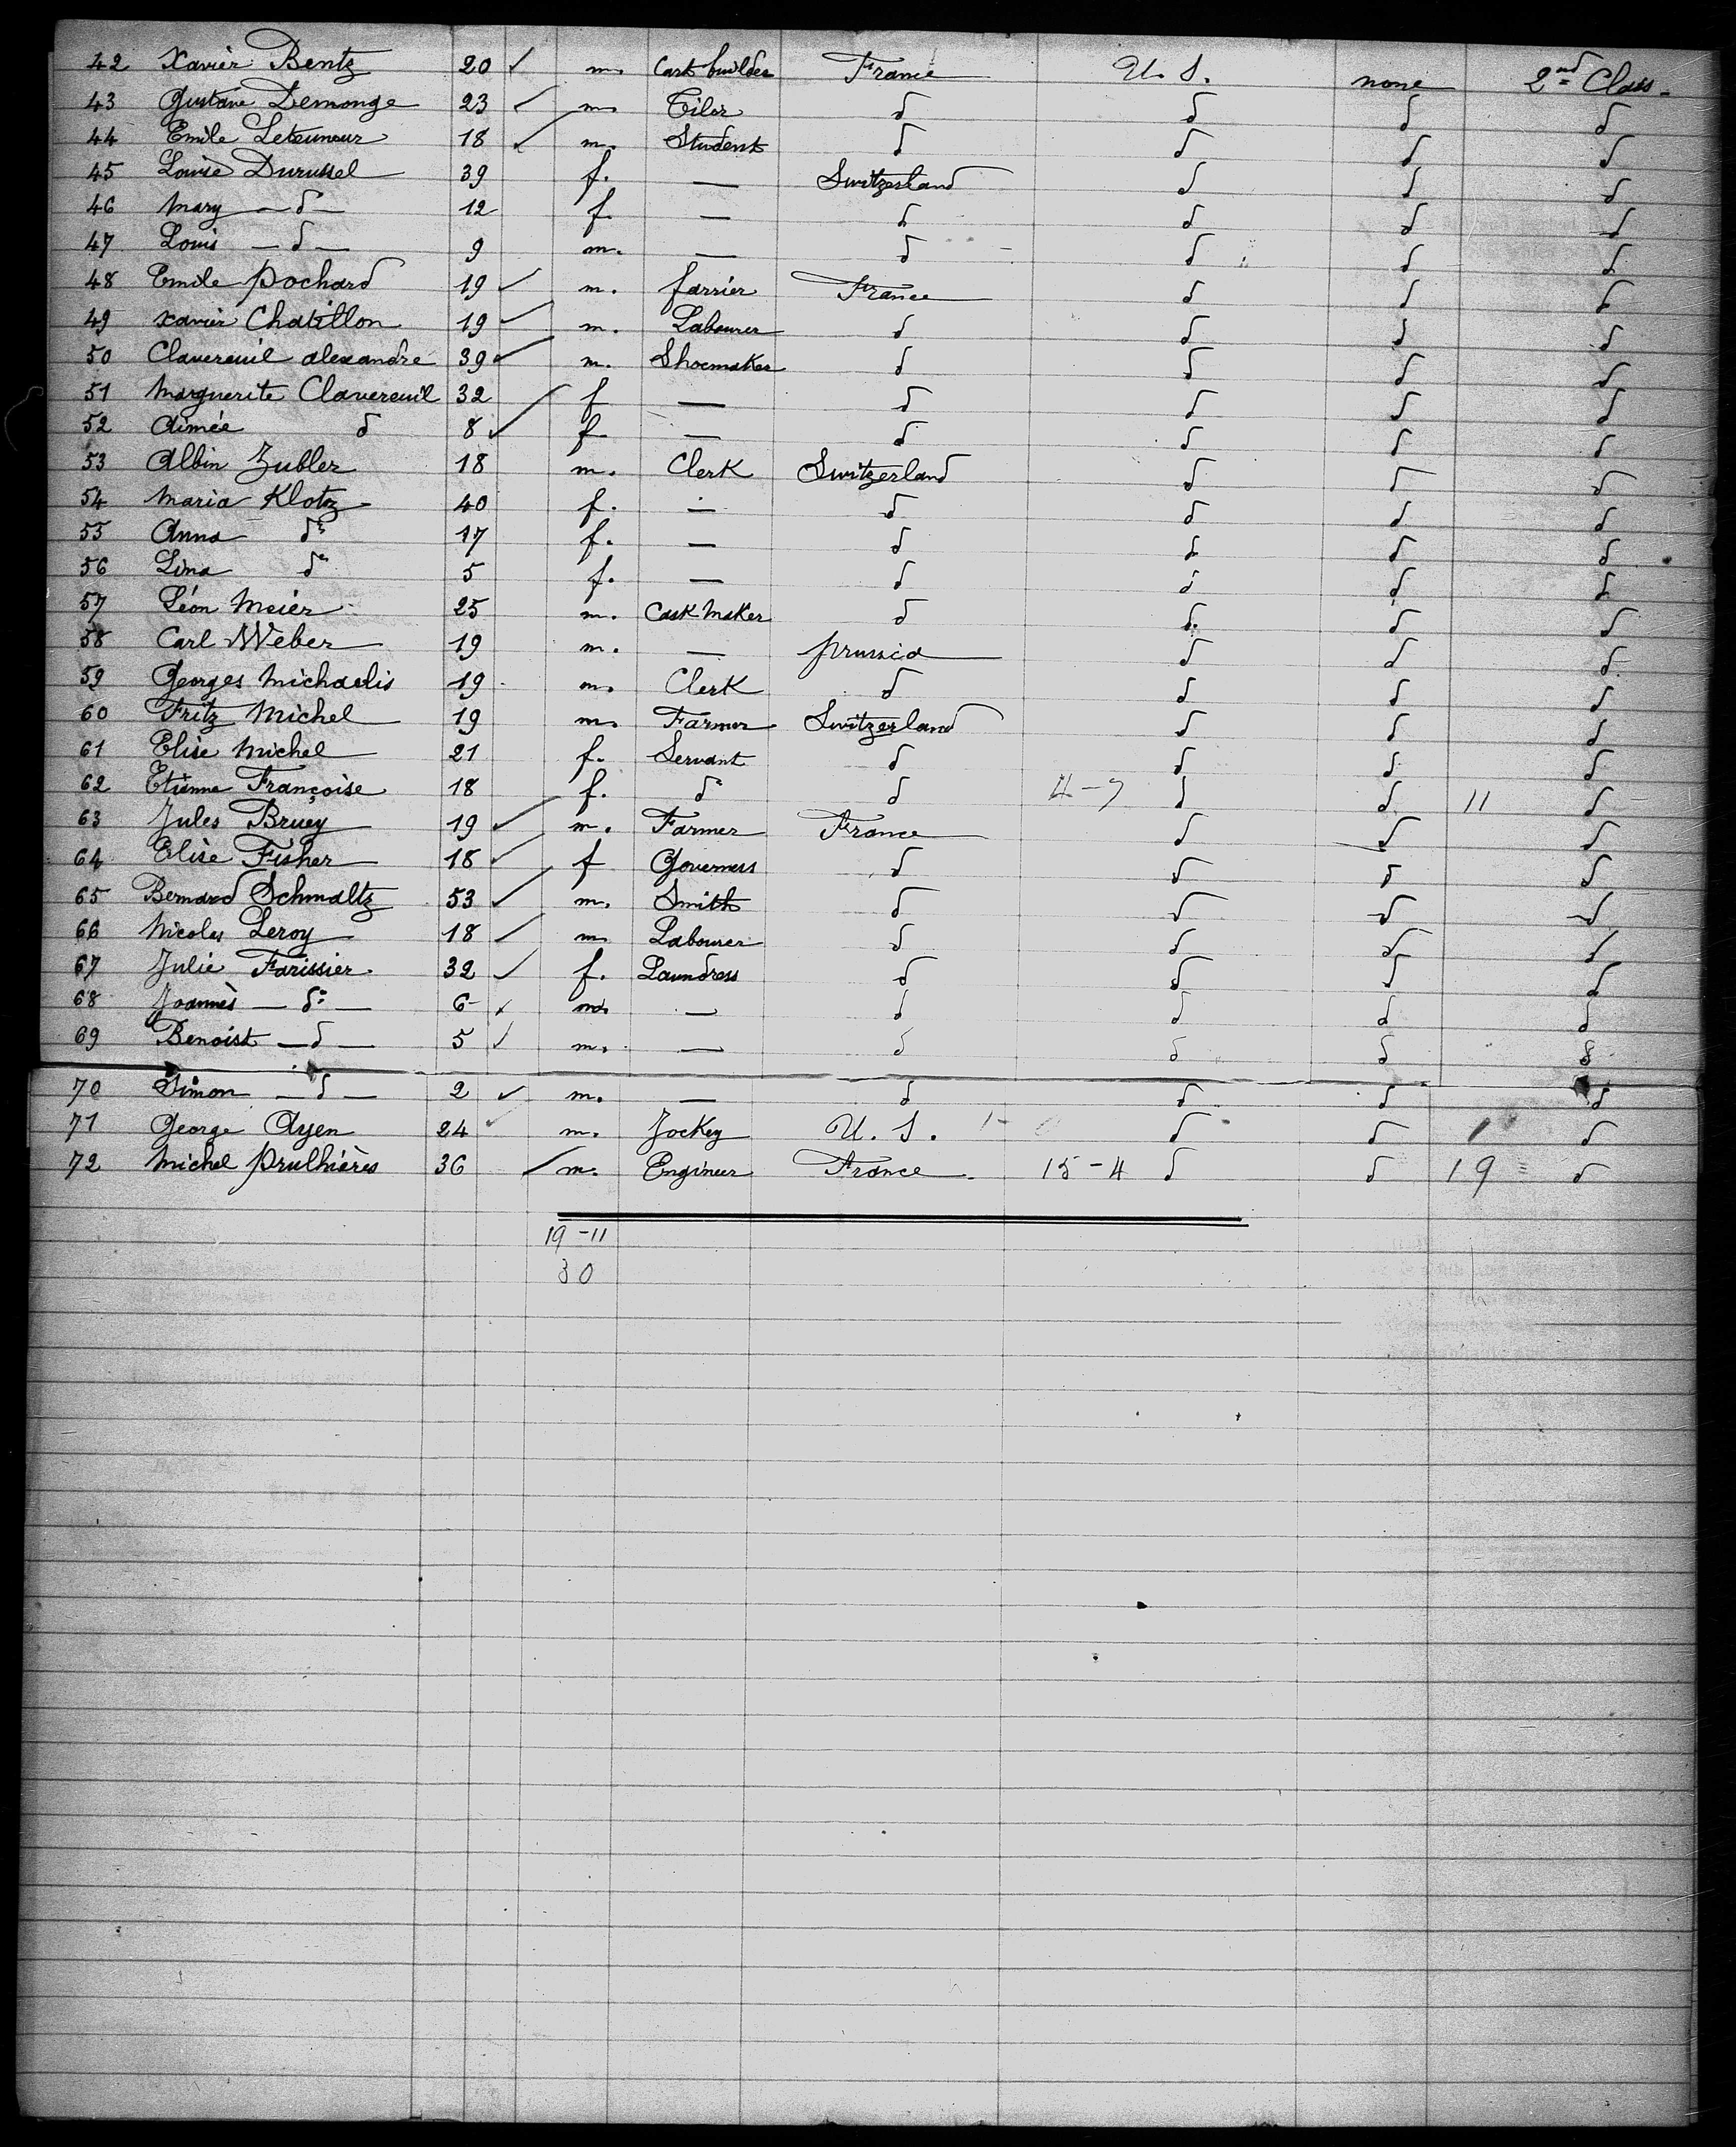 42 Xavier Bentz 20 ✓ m. Cart builder France U. S. none 2nd Class
43 Gustave Demonge 23 ✓ m. Tiler d d d d
44 Emile 18 ✓ m. Student d d d d
45 Louise Durussel 39 f. — Switzerland d d d
46 Mary — d° — 12 f. — d d d d
47 Louis — d — 9 m. — d d d d
48 Emile Pochard 19 ✓ m. farrier France d d d
49 Xavier Chatillon 19 ✓ m. Labourer d d d d
50 Clavereuil alexandre 39 ✓ m. Shoemaker d d d d
51 Marguerite Clavereuil 32 ✓ f — d d d d
52 Aimée d 8 ✓ f — d d d d
53 Albin Zubler 18 m. Clerk Switzerland d d d
54 Maria Klotz 40 f. — d d d d
55 Anna d° 17 f. — d d d d
56 Lina d° 5 f. — d d d d
57 Léon Meier 25 m. Cask Maker d d d d
58 Carl Weber 19 m. — prussia d d d
59 Georges Michaelis 19 m. Clerk d d d d
60 Fritz Michel 19 m. Farmer Switzerland d d d
61 Elise Michel 21 f. Servant d d d d
62 Etienne Françoise 18 f. d° d 4-7 d d 11 d
63 Jules Bruey 19 ✓ m. Farmer France d d d
64 Elise Fisher 18 ✓ f Governess d d d d
65 Bernard Schmaltz 53 ✓ m. Smith d d d d
66 Nicolas Leroy 18 ✓ m. Labourer d d d d
67 Julie Farissier 32 ✓ f. Laundress d d d d
68 Joannès — d° — 6 ✓ m. — d d d d
69 Benoist — d — 5 ✓ m. — d d d d
70 Simon — d — 2 ✓ m. — d d d d
71 George Ayen 24 ✓ m. Jockey U. S. 1-0 d d 1 d
72 Michel Prulhières 36 ✓ m. Engineer France 15-4 d d 19 d
19-11
30